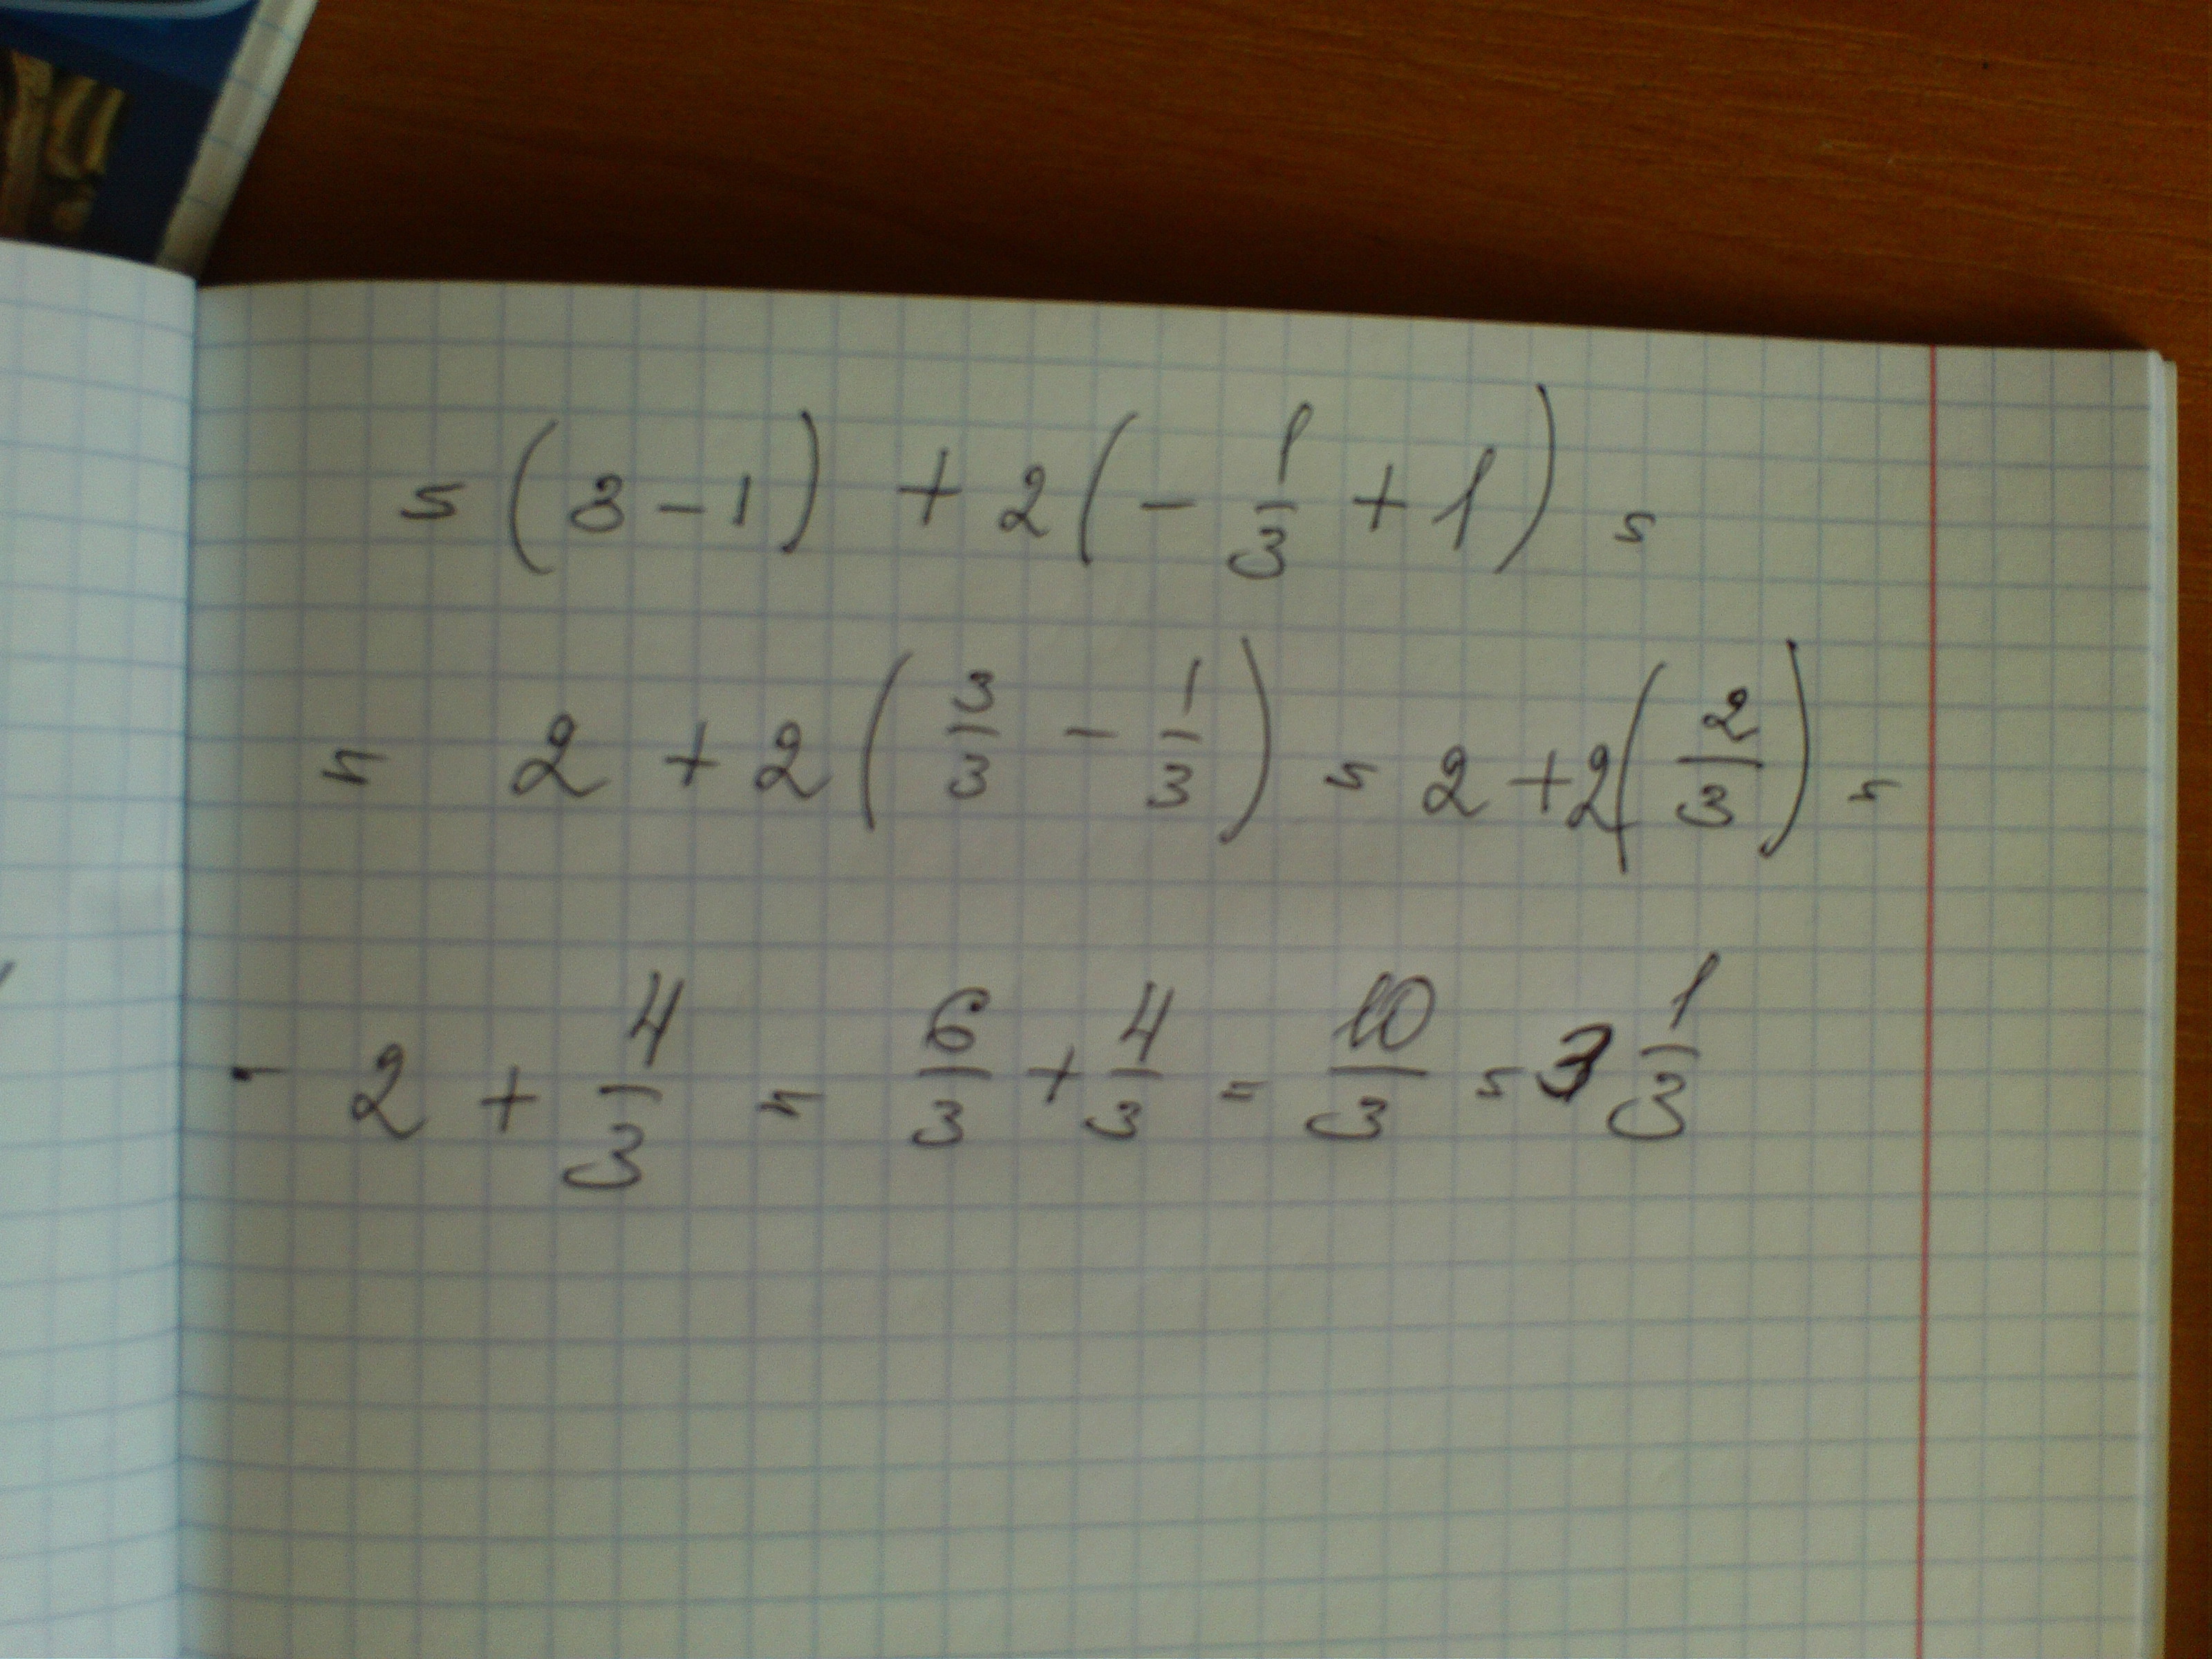 = (3 - 1) + 2(- 1/3 + 1) =
= 2 + 2(3/3 - 1/3) = 2 + 2(2/3) =
- 2 + 4/3 = 6/3 + 4/3 = 10/3 = 3 1/3